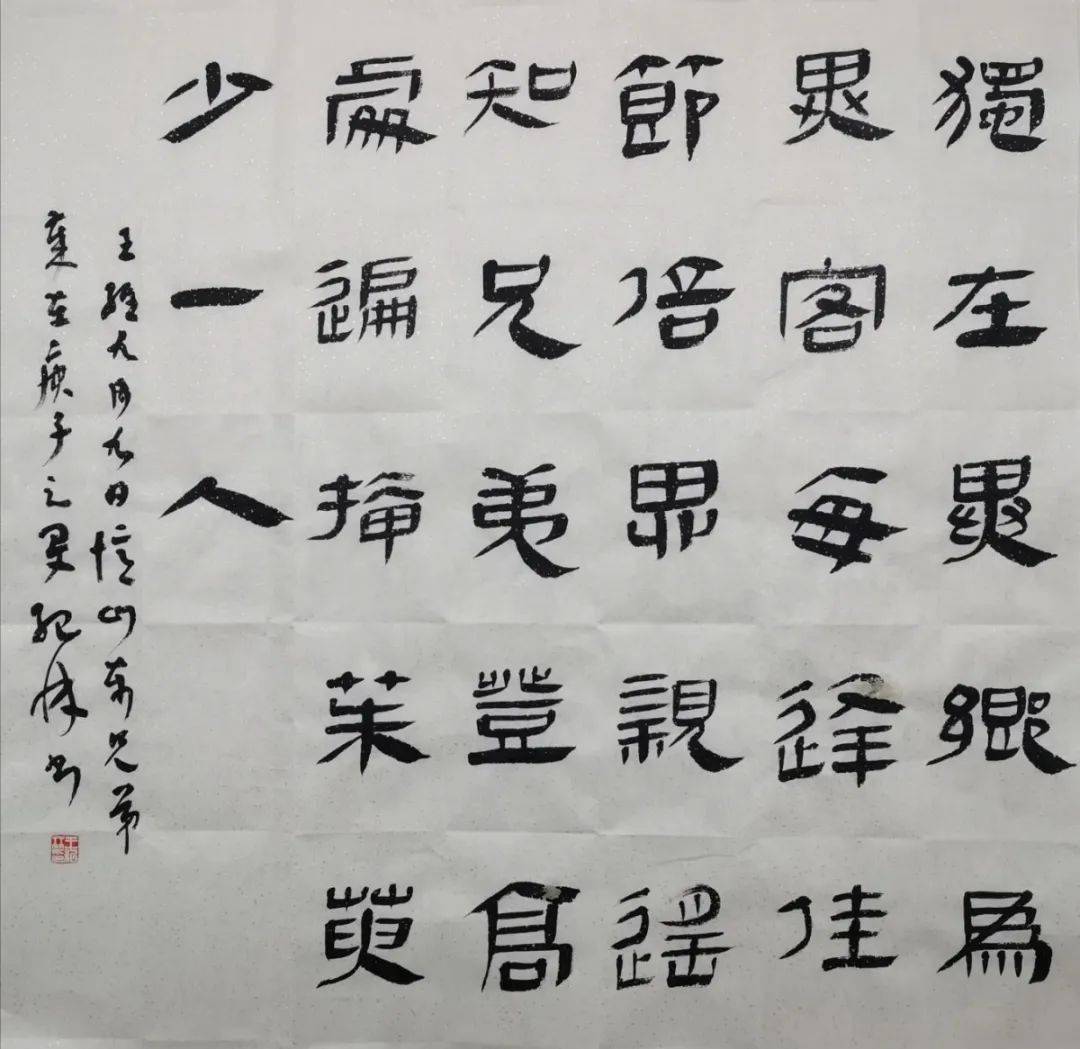 獨在異鄉爲
異客每逢佳
節倍思親遙
知兄弟登高
處遍插茱萸
少一人
王維九月九日憶山東兄弟
歲在庚子之夏書